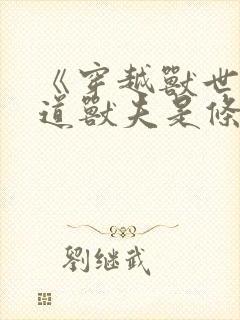 《穿越獸世
道獸夫是條
劉继武